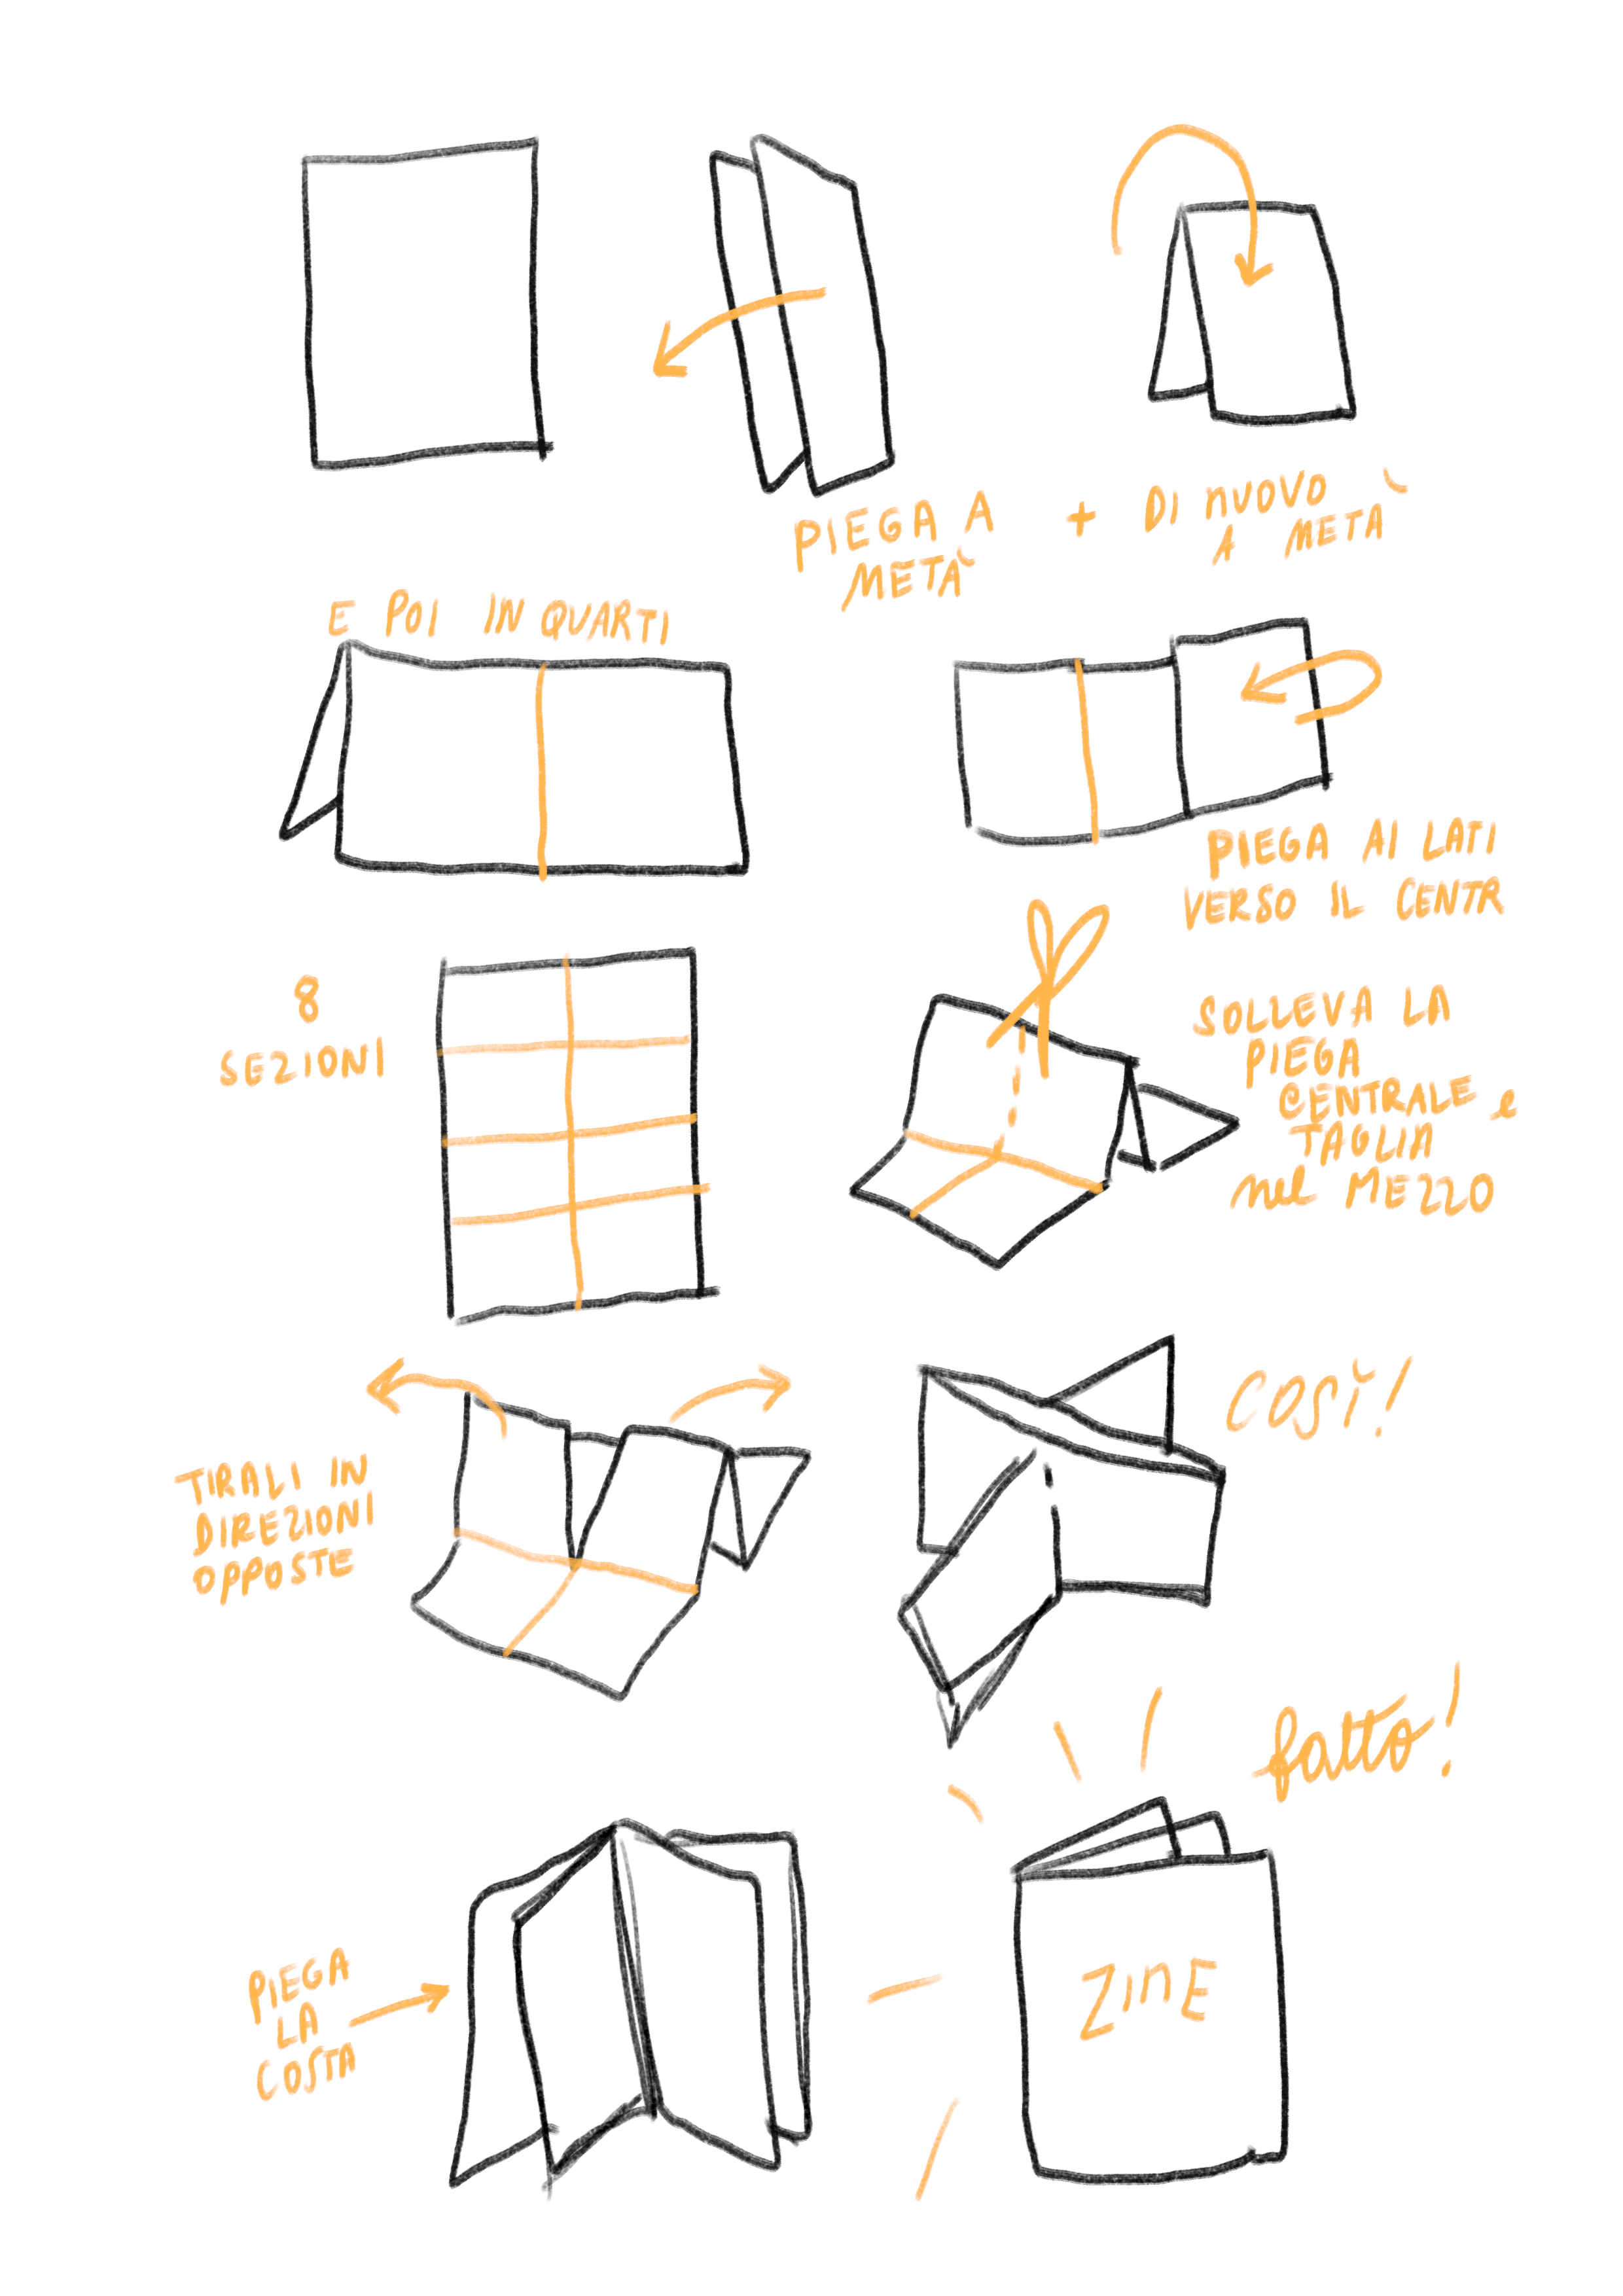 PIEGA A
METÀ
+
DI NUOVO
A METÀ
E POI IN QUARTI
PIEGA AI LATI
VERSO IL CENTR
8
SEZIONI
SOLLEVA LA
PIEGA
CENTRALE e
TAGLIA
nel MEZZO
TIRALI IN
DIREZIONI
OPPOSTE
COSÌ!
fatto!
PIEGA
LA
COSTA
ZINE